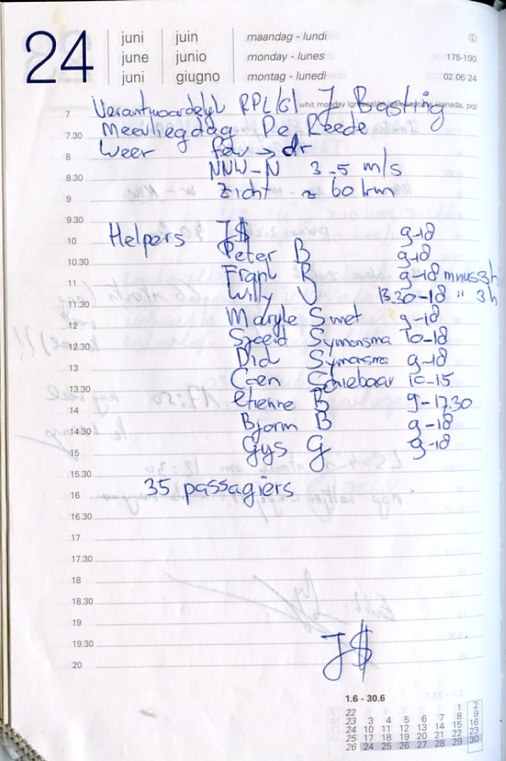 24
juni juin maandag - lundi
june junio monday - lunes 175-190
juni giugno montag - lunedì 02.06 24
whit monday
7 Verantwoordelijk RPL(G) J Basting
7.30 Meevliegdag De Reede
8 Weer few → dr
8.30 NNW-N 3-5 m/s
9 Zicht ≈ 60 km
9.30 Helpers J$ 9-18
10 Peter B 9-18
10.30 Frank B 9-18 minus 3h
11 Willy V 13.30-18 " 3h
11.30
12 Marijke Smet 9-18
12.30 Sjoerd Symonsma 10-18
13 Did Symonsma 9-18
13.30 Coen Schiebaar 10-15
Etienne B 9-17.30
14 Bjorn B 9-18
14.30 Gys G 9-18
15
15.30
16 35 passagiers
16.30
17
17.30
18
18.30
19
19.30 J$
20
1.6 - 30.6
22 1 2
23 3 4 5 6 7 8 9
24 10 11 12 13 14 15 16
25 17 18 19 20 21 22 23
26 24 25 26 27 28 29 30